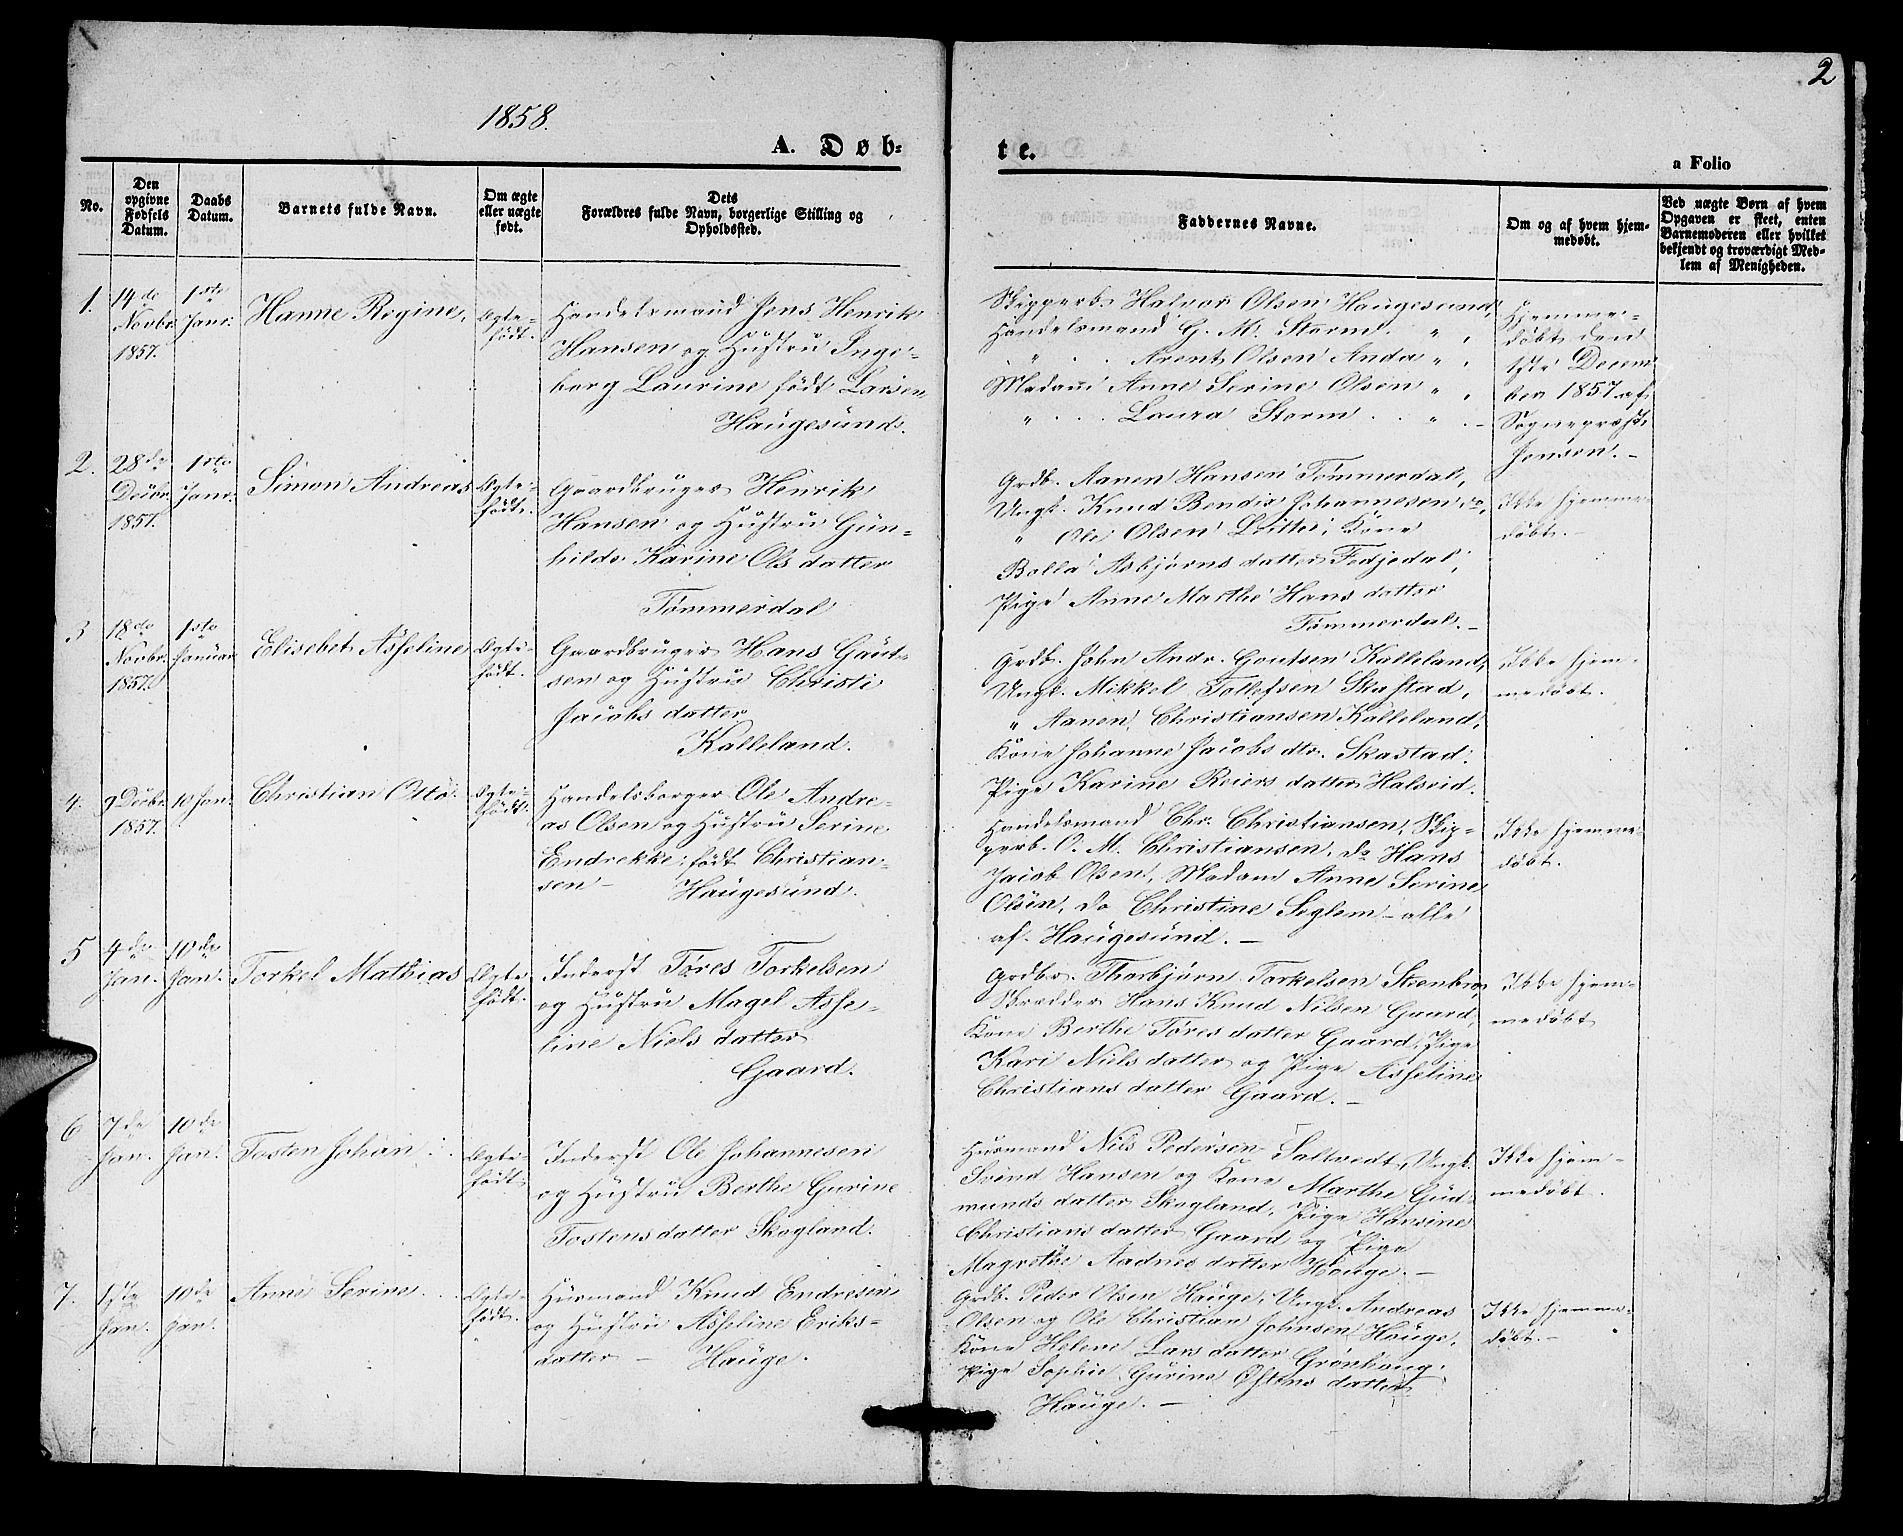 2
1858.
A. Døb-
te.
a Folio
No.
Den opgivne Fødsels Datum.
Daabs Datum.
Barnets fulde Navn.
Om ægte eller uægte født.
Dets Forældres fulde Navn, borgerlige Stilling og Opholdssted.
Faddernes Navne.
Om og af hvem hjem-
medøbt.
Ved uægte Børn af hvem
Opgaven er skeet, enten
Barnemoderen eller hvilket
bekjendt og troværdigt Med-
lem af Menigheden.
1.
14de
Novbr.
1857.
1ste
Janr.
Hanne Regine,
Ægte-
født.
Handelsmand Jens Henrik
Hansen og Hustru Inge-
borg Laurine født Larsen
Haugesund.
Skipperb. Halvor Olsen Haugesund,
Handelsmand G. M. Storm " ,
" . . Arent Olsen Anda " ,
Madame Anne Serine Olsen " ,
" . . . Laura Storm . . " . -
Hjemme-
døbt den
1ste Decem
ber 1857 af
Sognepræst
Jensen. -
2.
28de
Decbr.
1857.
1ste
Janr.
Simon Andreas
Ægte-
født.
Gaardbruger Henrik
Hansen og Hustru Gun-
hilde Karine Olsdatter
Tømmerdal
Grdb. Aanen Hansen Tømmerdal,
Ungk. Knud Bendix Johannesen
" Ole Olsen Kone
Bolla Asbjørnsdatter Fedjedal,
Pige Anne Marthe Hansdatter
Tømmerdal. -
Ikke hjemme-
døbt. -
3
18de
Novbr.
1857.
1ste
Januar
Elisebet Asseline
Ægte-
født.
Gaardbruger Hans Gaut-
sen og Hustru Christi
Jacobsdatter
Kalleland.
Grdb. John Andr. Goutsen Kalleland,
Ungk. Mikkel Tollefsen Skastad,
" Aanen Christiansen Kalleland,
Kone Johanne Jacobsdtr. Skastad.
Pige Karine Reiersdatter Halseid.
Ikke hjem-
medøbt.
4.
9 Decbr.
1857.
10 Jan.
Christian Otto.
Ægte-
født.
Handelsborger Ole Andre-
as Olsen og Hustru Serine
Endrekke, født Christian-
sen - Haugesund.
Handelsmand Chr. Christiansen, Skip-
perb. O. M. Christiansen, do Hans
Jacob Olsen, Madam Anne Serine
Olsen, do Christine Seglem - alle
af Haugesund. -
Ikke hjemme-
døbt.
5
4de
Jan.
10de
Jan.
Torkel Mathias
Ægte
født.
Inderst Tøres Torkelsen
og Hustru Magel Asse-
line Nielsdatter
Gaard.
Grdbr. Thorbjørn Torkelsen Steenbro,
Skredder Hans Knud Nilsen Gaard,
Kone Berthe Tøresdatter Gaard, Pige
Kari Nielsdatter og Pige Asseline
Christiansdatter Gaard. -
Ikke hjem-
medøbt
6
7de
Jan.
10de
Jan.
Tosten Johan .
Ægte
født
Inderst Ole Johannesen
og Hustru Berthe Gurine
Tostensdatter Skogland.
Husmand Nils Pedersen Saltvedt, Ungk.
Svend Hansen og Kone Marthe Gud-
mundsdatter Skogland, Pige Hansine
Christiansdatter Gaard og Pige
Magrethe Aadnesdatter Houge. -
Ikke hjem-
medøbt.
7.
1ste
Jan.
10de
Jan.
Anne Serine. .
Ægte-
født.
Husmand Knud Endresen
og Hustru Asseline Eriks-
datter - Hauge.
Grdb. Peder Olsen Hauge, Ungk. Andreas
Olsen og Ole Christian Johnsen Hauge,
Kone Helene Larsdatter Grønhaug.
Pige Sophie Gurine Østensdatter
Hauge. -
Ikke hjemme-
døbt. -